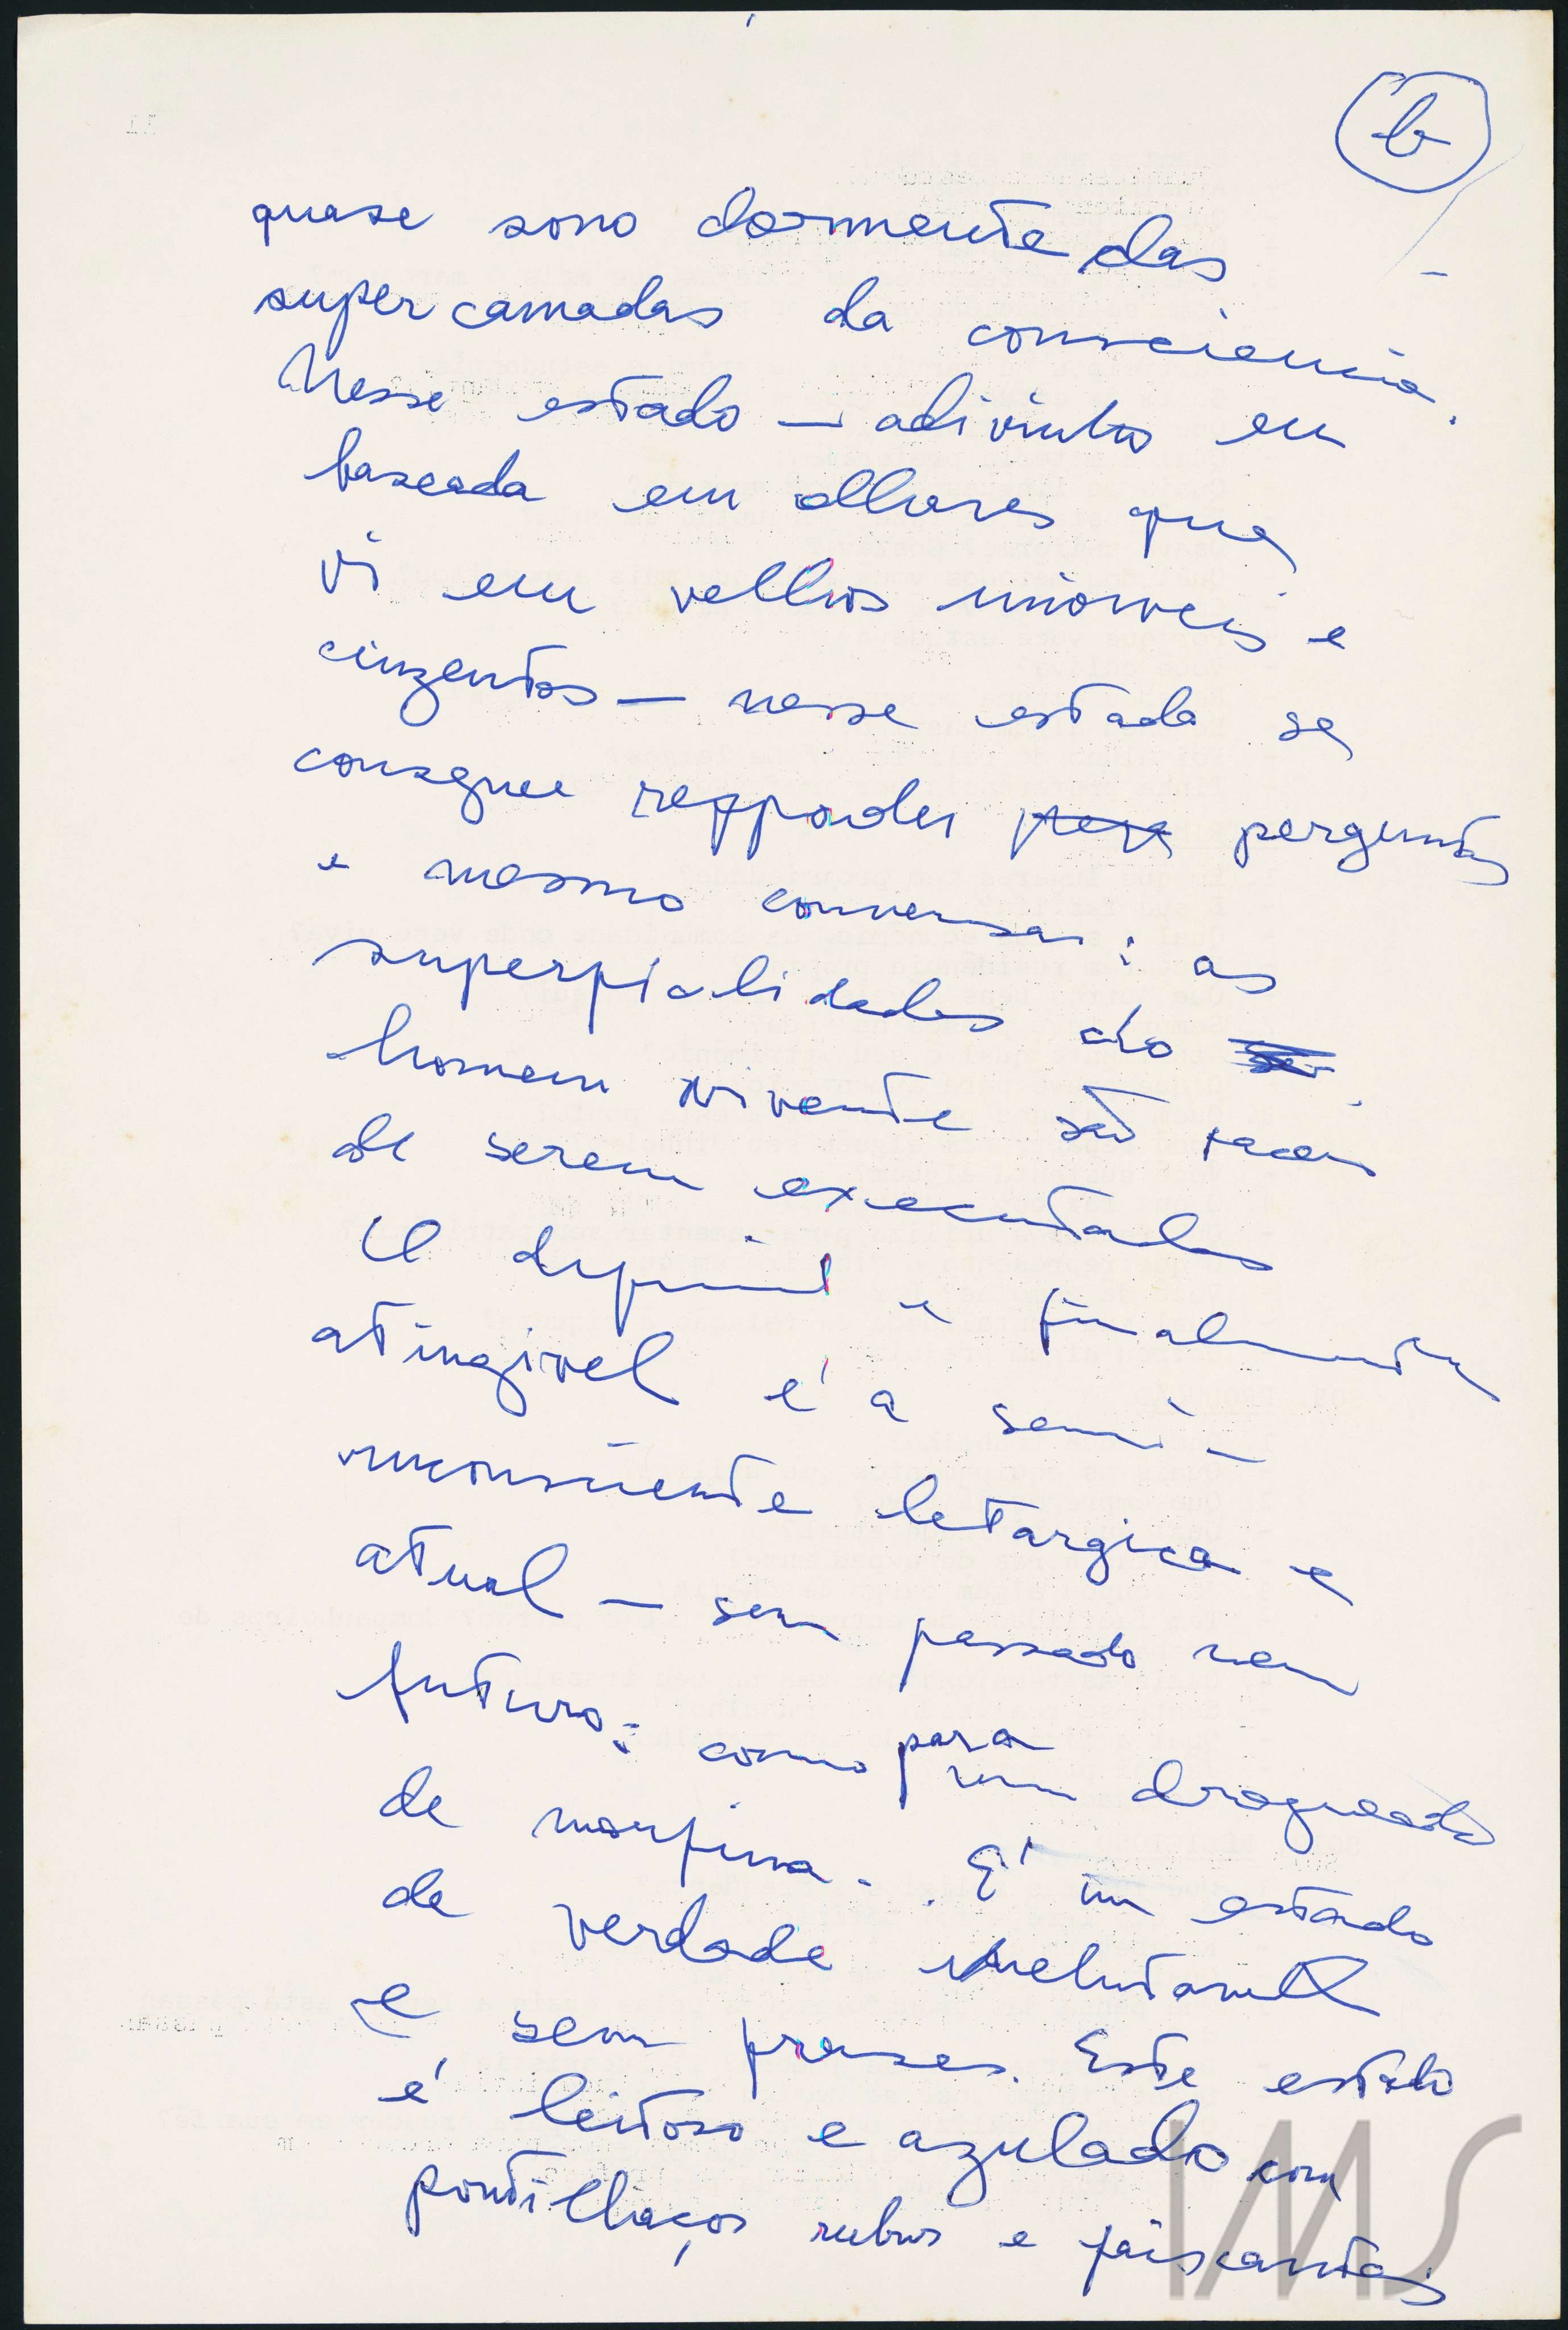 b
quase sono dormente das
super camadas da consciencia.
Nesse estado — adivinho eu
baseada em olhares que
vi em velhos imóveis e
cinzentos — nesse estado se
consegue responder perguntas
e mesmo conversar: as
superficialidades do
homem vivente são faceis
de serem executadas
O dificil e finalmente
atingivel é a semi-
inconsciente letargica e
atual — sem passado nem
futuro: como para um drogueado
de morfina. É um estado
de verdade inelutavel
e sem frases. Este estado
é leitoso e azulado com
pontilhaços rubros e faiscantes
IMS